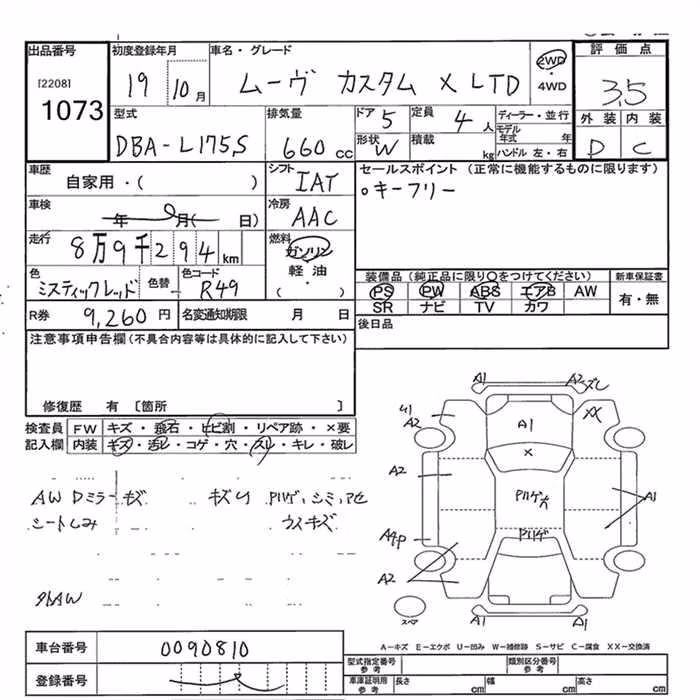 出品番号 初度登録年月 車名・グレード 評価点
[2208] 1073 19 10月 ムーヴ カスタム X LTD 2WD・4WD 3.5
型式 排気量 ドア 5 定員 4人 ディーラー・並行 外装 内装
モデル年式 年
DBA-L175S 660cc 形状 W 積載 kg ハンドル 左・右 D C
車歴 シフト セールスポイント (正常に機能するものに限ります)
自家用・( ) IAT キーフリー
車検 冷房
年 月( 日) AAC
走行 燃料
8万9千294km ガソリン
色 色替 色コード 軽油 装備品 (純正品に限り○をつけてください) 新車保証書
ミスティックレッド R49 ( ) PS PW ABS エアB AW 有・無
SR ナビ TV カワ
R券 9,260円 名変通知期限 月 日 後日品
注意事項申告欄 (不具合内容等は具体的に記入して下さい)
修復歴 有 〔箇所 〕
検査員 FW キズ・飛石・ヒビ割・リペア跡・×要
記入欄 内装 キズ・汚レ・コゲ・穴・スレ・キレ・破レ
AW Dミラーキズ
シートしみ ウィキズ
外AW
A1 A2
A2 A1 XX
A2 X
A1
A2
A2 A1 A1
スペア
A-キズ E-エクボ U-凹み W-補修跡 S-サビ C-腐食 XX-交換済
車台番号 0090810
登録番号
型式指定番号 参考 類別区分番号 参考
車庫証明用 参考 長さ cm 幅 cm 高さ cm